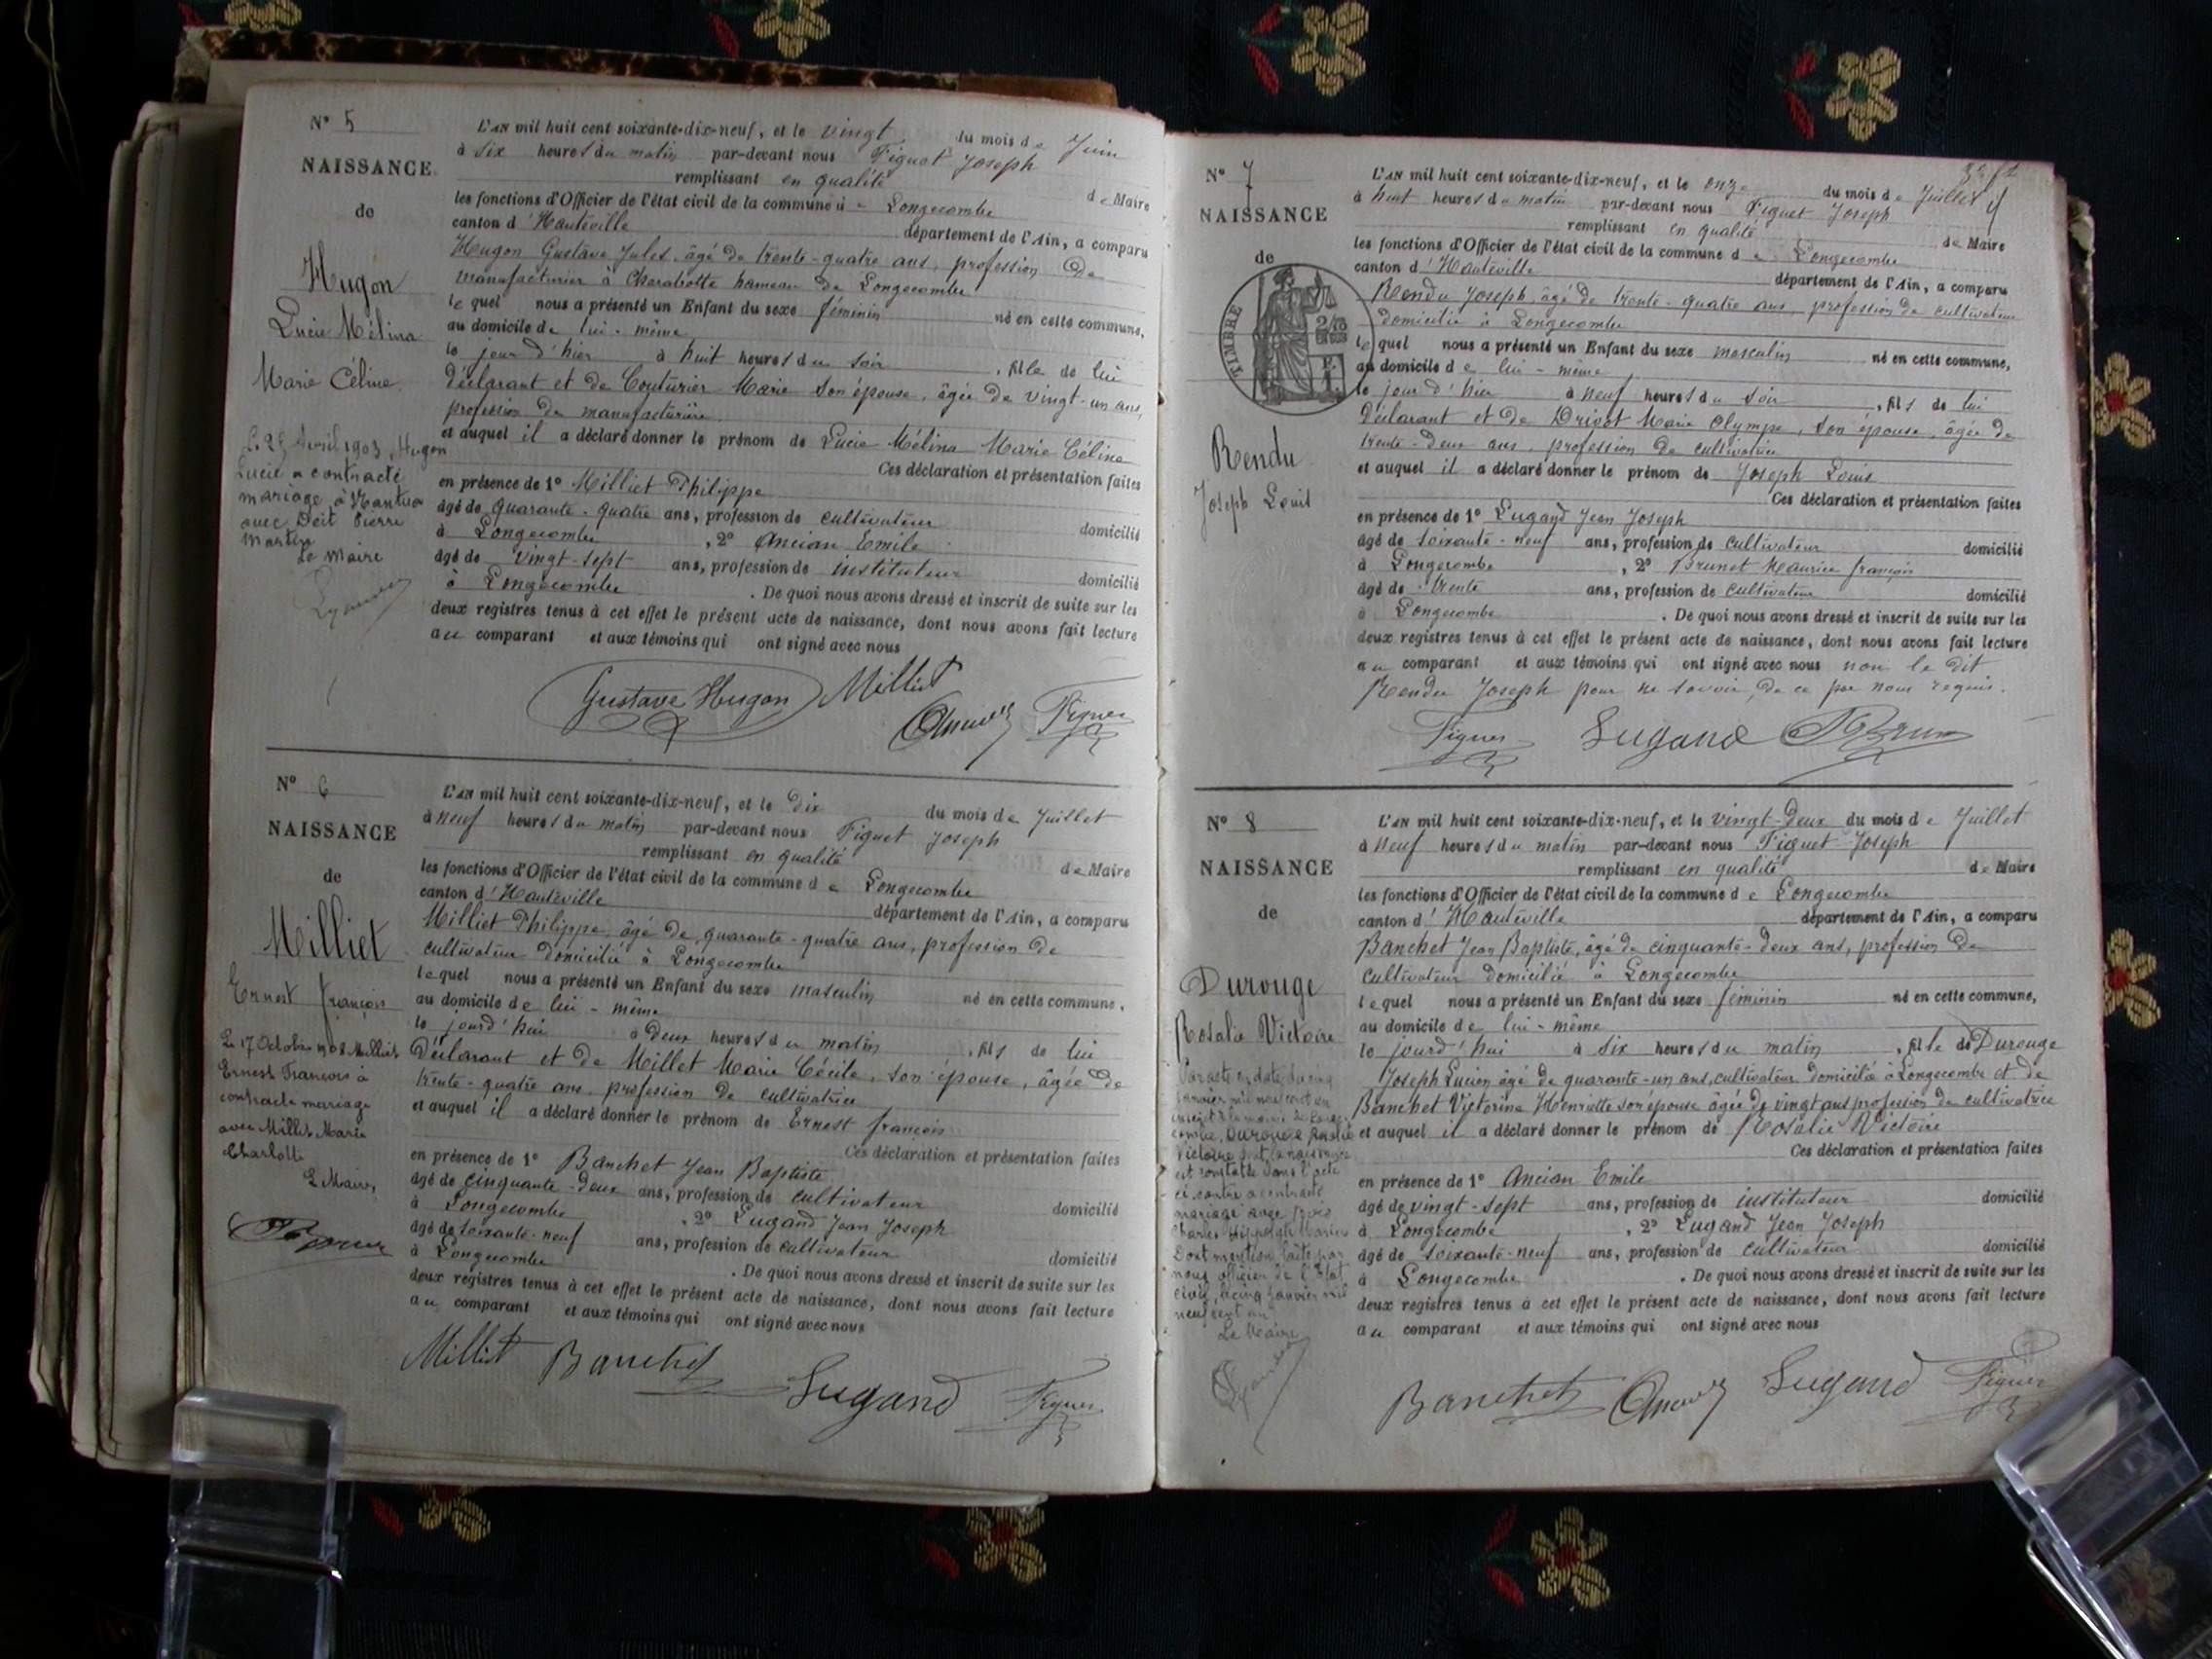 N° 5
NAISSANCE
de
Hugon
Lucie Mélina
Marie Céline
Le 25 Avril 1903, Hugon
Lucie a contracté
mariage à Nantua
avec Pierre
Le Maire
L'AN mil huit cent soixante-dix-neuf, et le vingt du mois de Juin
à six heures du matin par-devant nous Figuet Joseph
remplissant en qualité de Maire
les fonctions d'Officier de l'état civil de la commune de Longecombe
canton d'Hauteville département de l'Ain, a comparu
Hugon Gustave Jules, âgé de trente-quatre ans, profession de
manufacturier à Charabotte hameau de Longecombe
lequel nous a présenté un Enfant du sexe féminin né en cette commune,
au domicile de lui-même
le jour d'hier à huit heures du soir, fille de lui
déclarant et de Couturier Marie son épouse, âgée de vingt-un ans,
profession de manufacturière
et auquel il a déclaré donner le prénom de Lucie Mélina Marie Céline
Ces déclaration et présentation faites
en présence de 1° Milliet Philippe
âgé de quarante-quatre ans, profession de cultivateur domicilié
à Longecombe, 2° Ancian Emile
âgé de vingt-sept ans, profession de instituteur domicilié
à Longecombe. De quoi nous avons dressé et inscrit de suite sur les
deux registres tenus à cet effet le présent acte de naissance, dont nous avons fait lecture
au comparant et aux témoins qui ont signé avec nous
Gustave Hugon Milliet
Ancian Figuet
N° 6
NAISSANCE
de
Milliet
Ernest françois
Le 17 Octobre 1908 Milliet
Ernest François a
contracté mariage
avec Millet Marie
Charlotte
Le Maire,
L'AN mil huit cent soixante-dix-neuf, et le dix du mois de Juillet
à neuf heures du matin par-devant nous Figuet Joseph
remplissant en qualité de Maire
les fonctions d'Officier de l'état civil de la commune de Longecombe
canton d'Hauteville département de l'Ain, a comparu
Milliet Philippe, âgé de quarante-quatre ans, profession de
cultivateur domicilié à Longecombe
lequel nous a présenté un Enfant du sexe masculin né en cette commune,
au domicile de lui-même
le jourd'hui à deux heures du matin, fils de lui
déclarant et de Millet Marie Cécile, son épouse, âgée de
trente-quatre ans, profession de cultivatrice
et auquel il a déclaré donner le prénom de Ernest françois
Ces déclaration et présentation faites
en présence de 1° Banchet Jean Baptiste
âgé de cinquante-deux ans, profession de cultivateur domicilié
à Longecombe, 2° Lugand Jean Joseph
âgé de soixante-neuf ans, profession de cultivateur domicilié
à Longecombe. De quoi nous avons dressé et inscrit de suite sur les
deux registres tenus à cet effet le présent acte de naissance, dont nous avons fait lecture
au comparant et aux témoins qui ont signé avec nous
Milliet Banchet
Lugand Figuet
N° 7
NAISSANCE
de
TIMBRE
Rendu
Joseph Louis
L'AN mil huit cent soixante-dix-neuf, et le onze du mois de Juillet
à huit heures du matin par-devant nous Figuet Joseph
remplissant en qualité de Maire
les fonctions d'Officier de l'état civil de la commune de Longecombe
canton d'Hauteville département de l'Ain, a comparu
Rendu Joseph, âgé de trente-quatre ans, profession de cultivateur
domicilié à Longecombe
lequel nous a présenté un Enfant du sexe masculin né en cette commune,
au domicile de lui-même
le jour d'hier à neuf heures du soir, fils de lui
déclarant et de Drivet Marie Olympe, son épouse, âgée de
trente-deux ans, profession de cultivatrice
et auquel il a déclaré donner le prénom de Joseph Louis
Ces déclaration et présentation faites
en présence de 1° Lugand Jean Joseph
âgé de soixante-neuf ans, profession de cultivateur domicilié
à Longecombe, 2° Brunet Maurice françois
âgé de trente ans, profession de cultivateur domicilié
à Longecombe. De quoi nous avons dressé et inscrit de suite sur les
deux registres tenus à cet effet le présent acte de naissance, dont nous avons fait lecture
au comparant et aux témoins qui ont signé avec nous non le dit
Rendu Joseph pour ne savoir, de ce par nous requis.
Figuet Lugand
N° 8
NAISSANCE
de
Durouge
Rosalie Victoire
Par acte en date du cinq
janvier mil neuf cent un
inscrit à la mairie de Longe-
combe, Durouge Rosalie
Victoire dont la naissance
est constatée dans l'acte
ci-contre a contracté
mariage avec
Charles Hippolyte
Dont mention faite par
nous officier de l'Etat
civil, le cinq janvier mil
neuf cent un
Le Maire
L'AN mil huit cent soixante-dix-neuf, et le vingt-deux du mois de Juillet
à neuf heures du matin par-devant nous Figuet Joseph
remplissant en qualité de Maire
les fonctions d'Officier de l'état civil de la commune de Longecombe
canton d'Hauteville département de l'Ain, a comparu
Banchet Jean Baptiste, âgé de cinquante-deux ans, profession de
cultivateur domicilié à Longecombe
lequel nous a présenté un Enfant du sexe féminin né en cette commune,
au domicile de lui-même
le jourd'hui à six heures du matin, fille de Durouge
Joseph Lucien âgé de quarante-un ans, cultivateur domicilié à Longecombe et de
Banchet Victorine Henriette son épouse âgée de vingt ans profession de cultivatrice
et auquel il a déclaré donner le prénom de Rosalie Victoire
Ces déclaration et présentation faites
en présence de 1° Ancian Emile
âgé de vingt-sept ans, profession de instituteur domicilié
à Longecombe, 2° Lugand Jean Joseph
âgé de soixante-neuf ans, profession de cultivateur domicilié
à Longecombe. De quoi nous avons dressé et inscrit de suite sur les
deux registres tenus à cet effet le présent acte de naissance, dont nous avons fait lecture
au comparant et aux témoins qui ont signé avec nous
Banchet Ancian Lugand Figuet